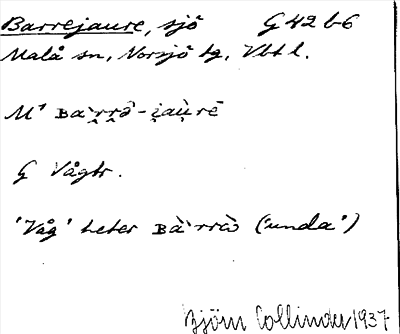 Barrejaure, sjö G 42 b6
Malå sn, Norsjö tg, Vbt l.
M¹ Bà`r̯r̯ə̑-i̯au̯rē
G Vågtr.
'Våg' heter Bà`rrɷ̀ ('unda')
Björn Collinder 1937